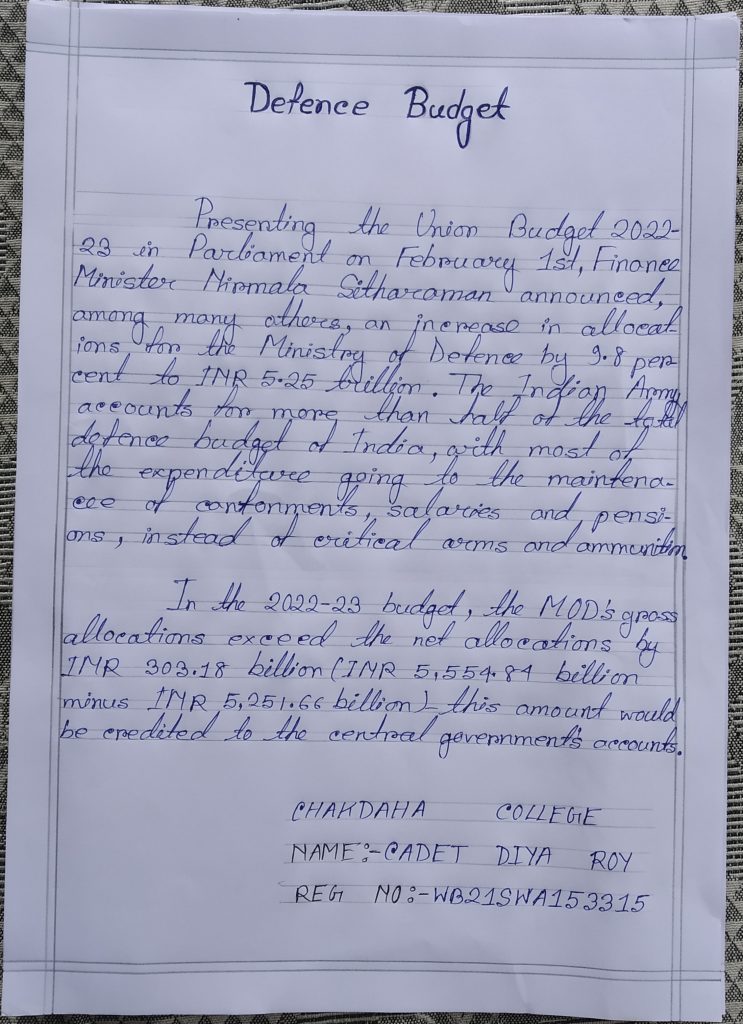 Defence Budget
Presenting the Union Budget 2022-
23 in Parliament on February 1st, Finance
Minister Nirmala Sitharaman announced,
among many others, an increase in allocat-
ions for the Ministry of Defence by 9.8 per
cent to INR 5.25 trillion. The Indian Army
accounts for more than half of the total
defence budget of India, with most of
the expenditure going to the maintena-
cce of cantonments, salaries and pensi-
ons, instead of critical arms and ammunition.
In the 2022-23 budget, the MOD's gross
allocations exceed the net allocations by
INR 303.18 billion (INR 5,554.84 billion
minus INR 5,251.66 billion) - this amount would
be credited to the central government's accounts.
CHAKDAHA COLLEGE
NAME:-CADET DIYA ROY
REG NO:-WB21SWA153315